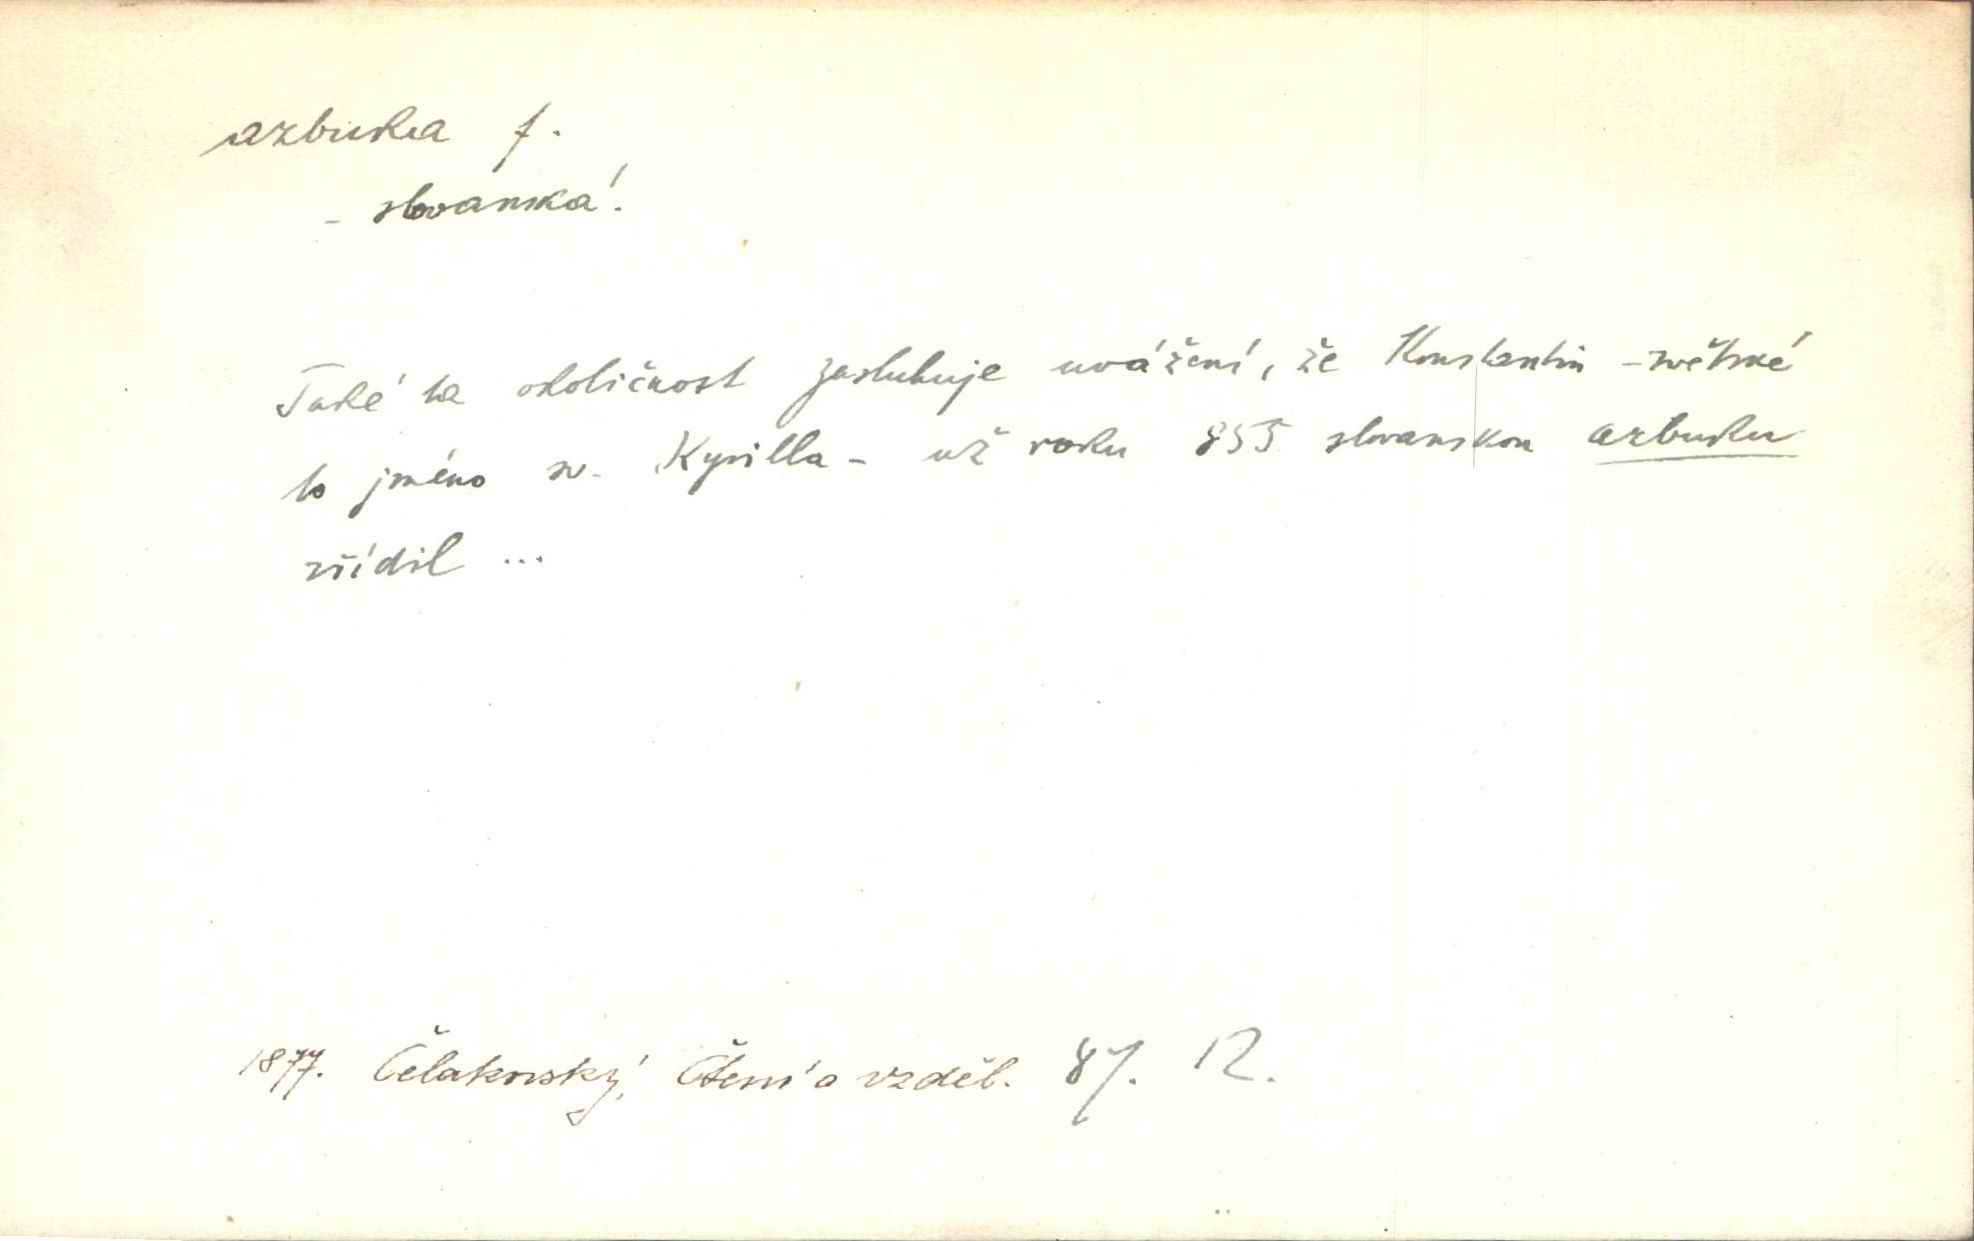 azbuka f.
- slovanská.
Také ta okoličnost zasluhuje uvážení, že Konstantin - světské
to jméno sv. Kyrilla - už roku 855 slovanskou azbuku
zřídil ...
1877. Čelakovský, Čtení o vzděl. 87. 12.